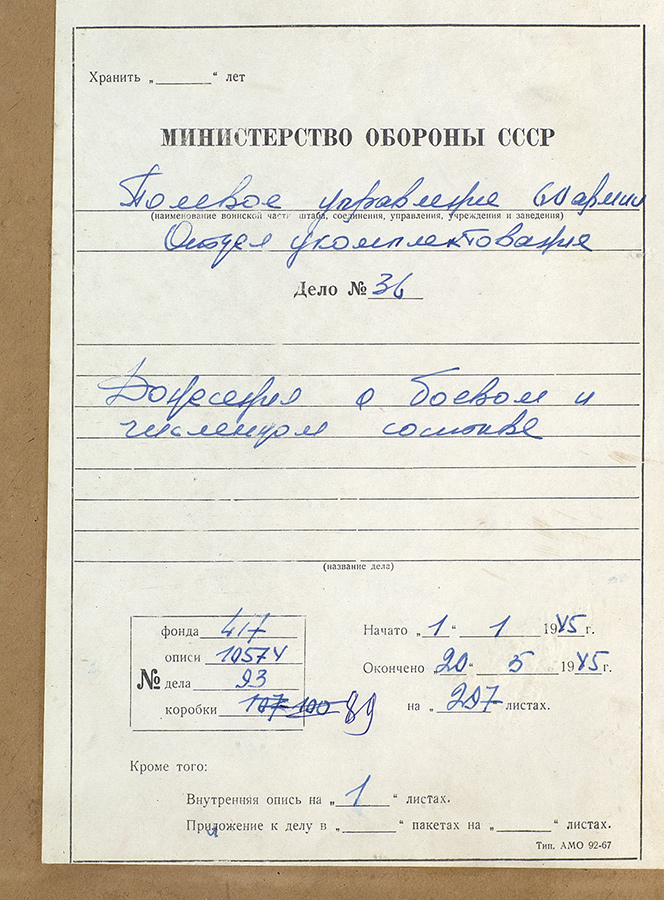 Хранить „ “ лет
МИНИСТЕРСТВО ОБОРОНЫ СССР
Полевое управление 60 армии
(наименование воинской части штаба, соединения, управления, учреждения и заведения)
Отдел укомплектования
Дело № 36
Донесения о боевом и
численном составе
(название дела)
фонда 417
описи 10574
№ дела 93
коробки 107 100 89
Начато „1“ 1 1945 г.
Окончено 20“ 5 1945 г.
на „207 листах.
Кроме того:
Внутренняя опись на „1“ листах.
Приложение к делу в „ “ пакетах на „ “ листах.
Тип. АМО 92-67